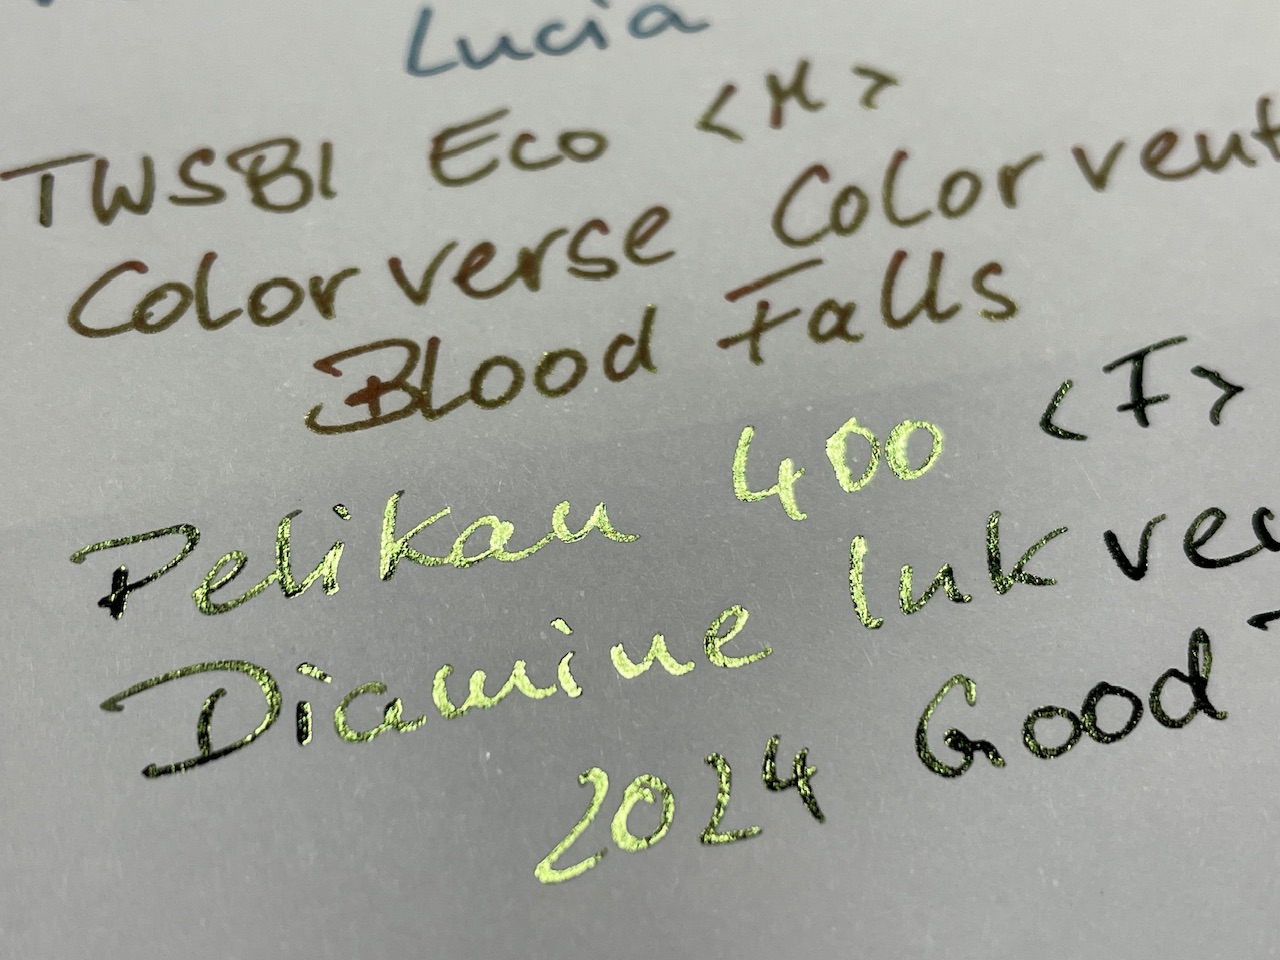 Lucia
TWSBI Eco <M>
Colorverse Colorvent
Blood Falls
Pelikan 400 <F>
Diamine Inkve
2024 Good